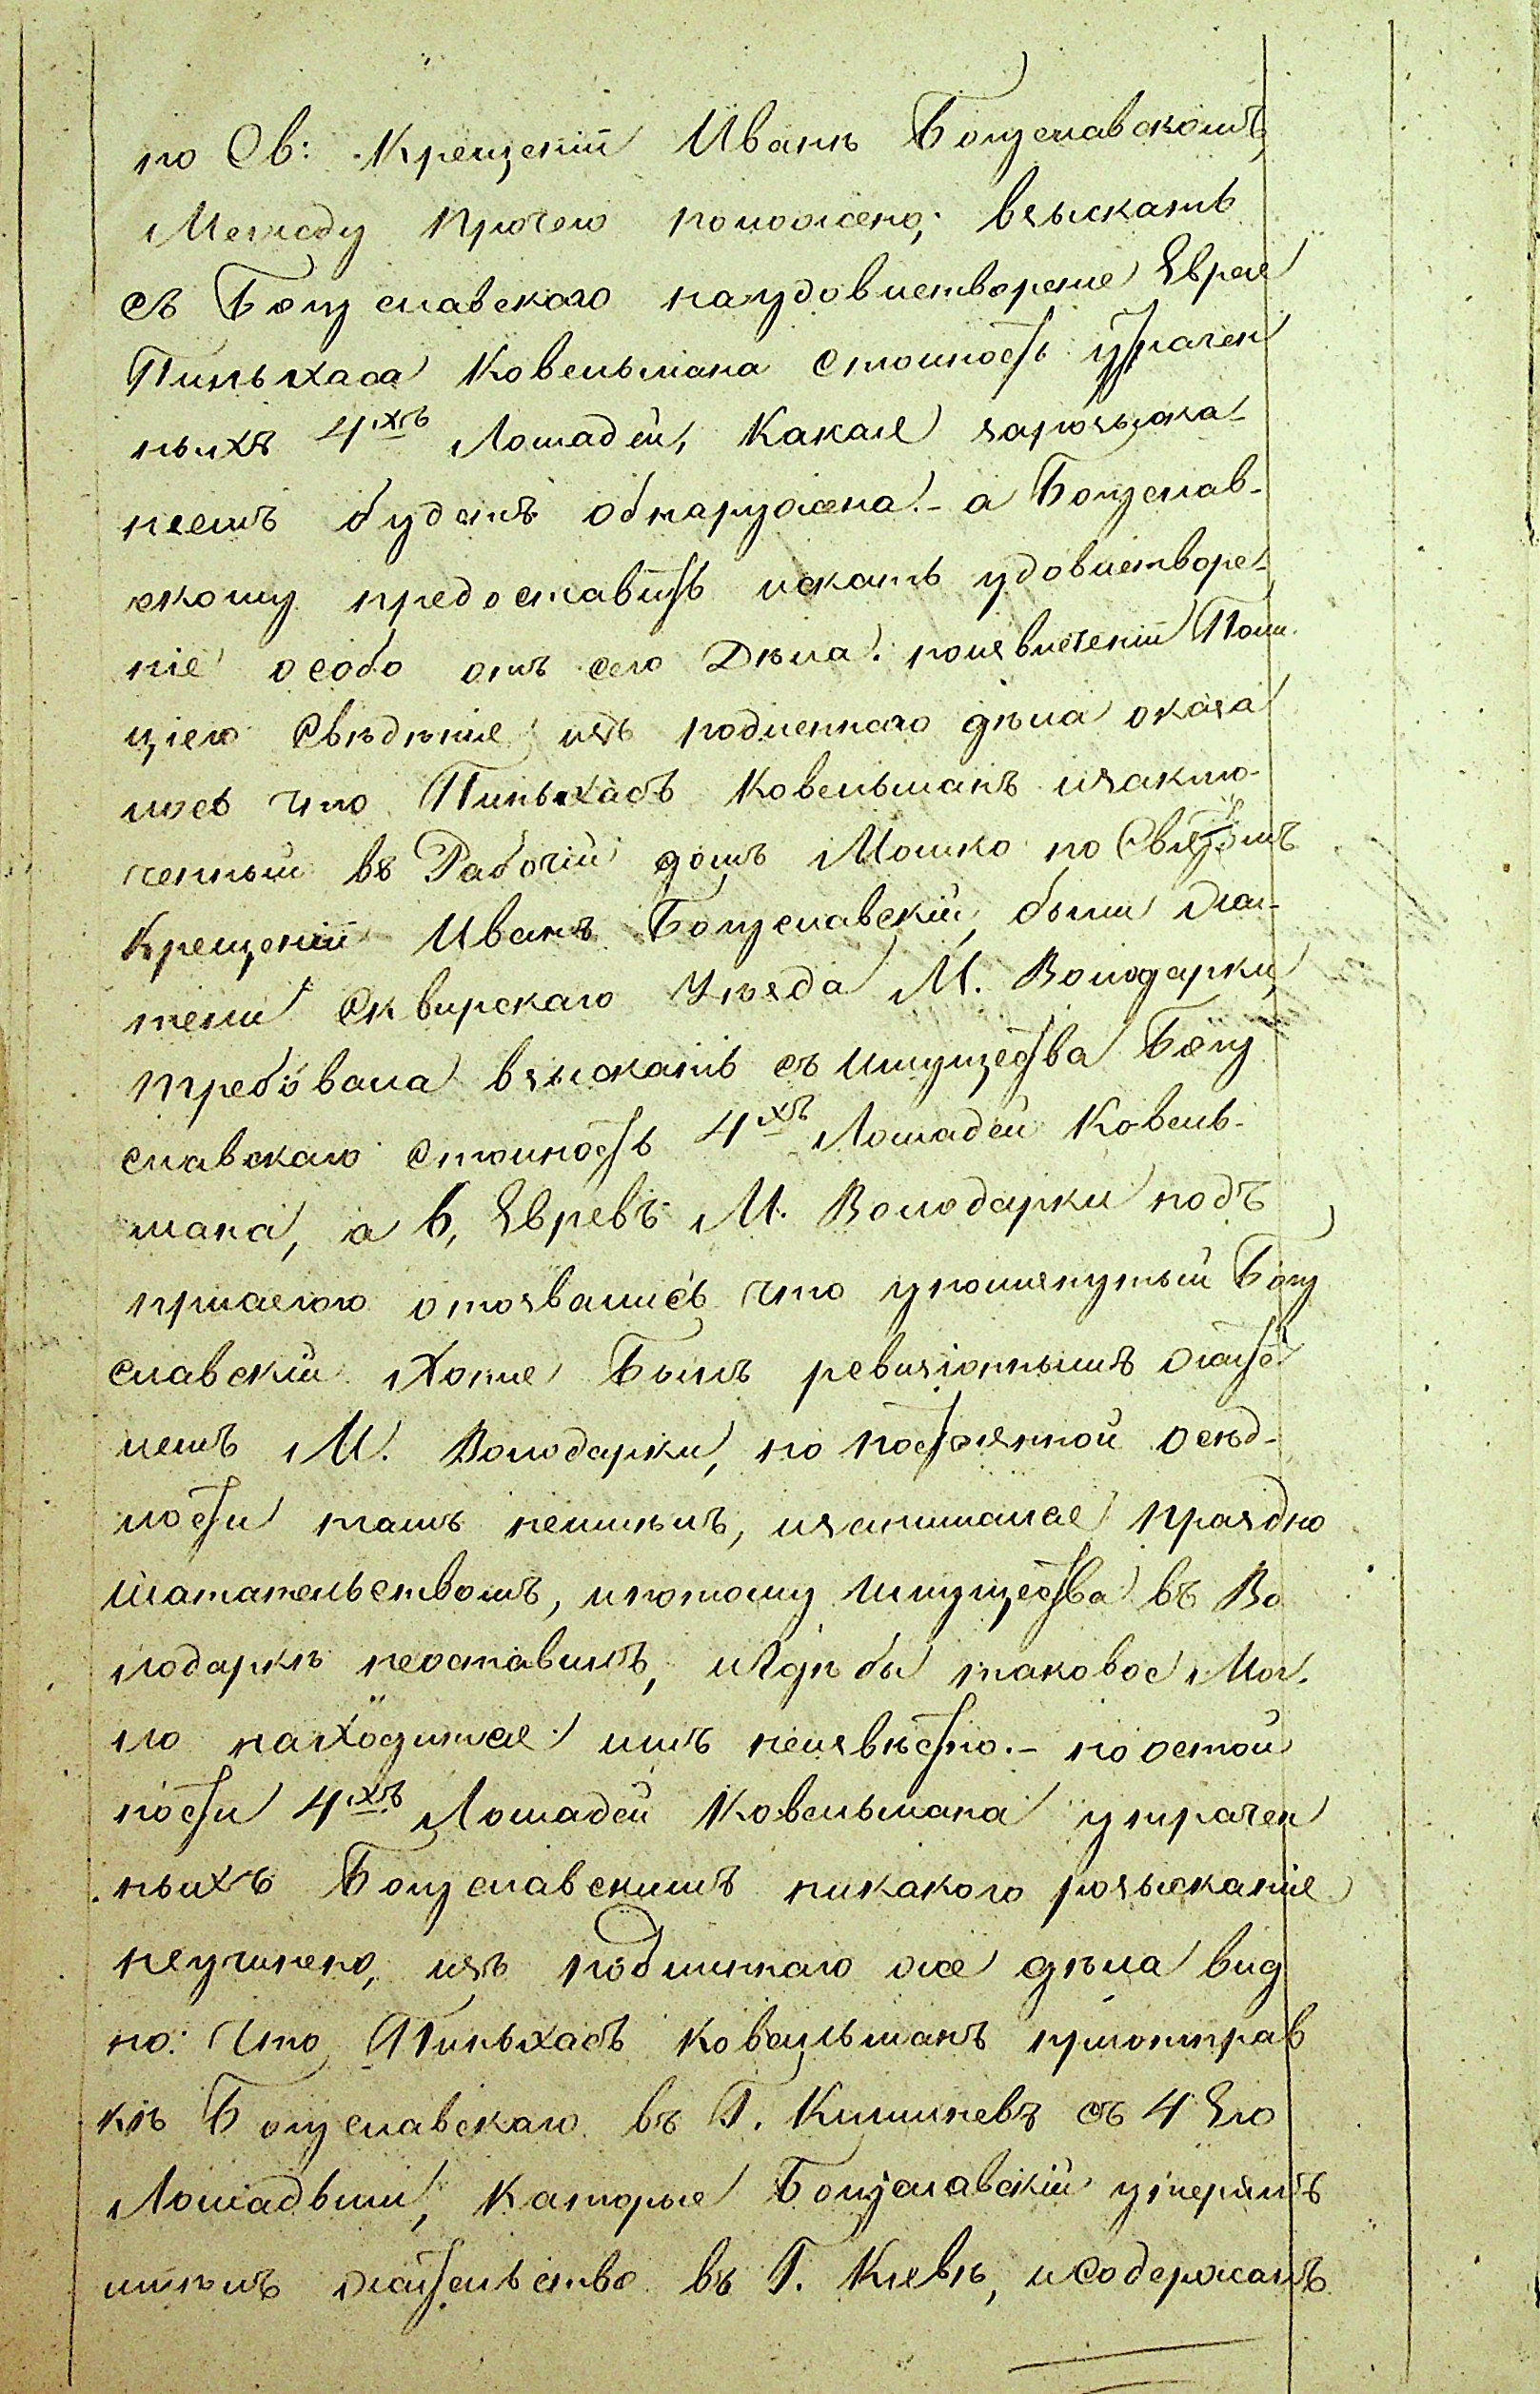 по Св: Крещеніи Иванѣ Богуславскомъ,
Между прочего положено; взыскать
съ Богуславского наудовлетвореніе Еврея
Пиньхаса Ковельмана стоимость утрачен
ныхъ 4хъ Лошадей, Какая зарозыска-
ніемъ будетъ обнаружена.- а Богуслав-
скому предоставить искать удовлетворе-
ніе особо отъ сего Дѣла. поизвлеченіи Поли
ціею Свѣдѣніе изъ подленного дѣла оказа
лось что Пиньхасъ Ковельманъ изаклю-
ченный въ Рабочій домъ Мошко по Святомъ
Крещеніи Иванъ Богуславскій, были жи-
тели Сквирскаго Уѣзда М. Володарки,
требовала взыскать съ имущества Богу
славскаго стоимость 4хъ Лошадей Ковель-
мана, а 6, Евреевъ М. Володарки подъ
присягою отозвались что упомянутый Богу
славскій Хотя Былъ ревизіоннымъ жите
лемъ М. Володарки, но постоянной осѣд-
лости тамъ неимѣлъ, изанимался праздно
шатательствомъ, ипотому имущества въ Во
лодаркѣ неоставилъ, иГдѣ бы таковое мог.
ло находится имъ неизвѣстно.- по остои
ности 4хъ Лошадей Ковельмана утрачен
ныхъ Богуславскимъ никакого розысканія
неучинено, изъ подлиннаго же дѣла вид
но: Что Пиньхасъ Ковельманъ приотправ
кѣ Богуславскаго въ Г. Кишиневъ съ 4 Его
Лошадьми, Каторые Богуславскій утерялъ
имѣлъ жительство въ Г. Кіевѣ, иСодержалъ